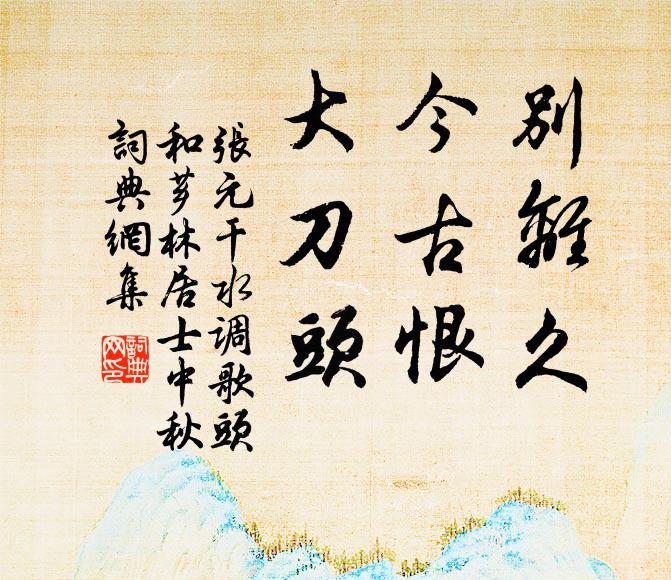 別離久
今古恨
大刀頭
張元干水调歌頭
和芗林居士中秋
詞典網集
詞典網印